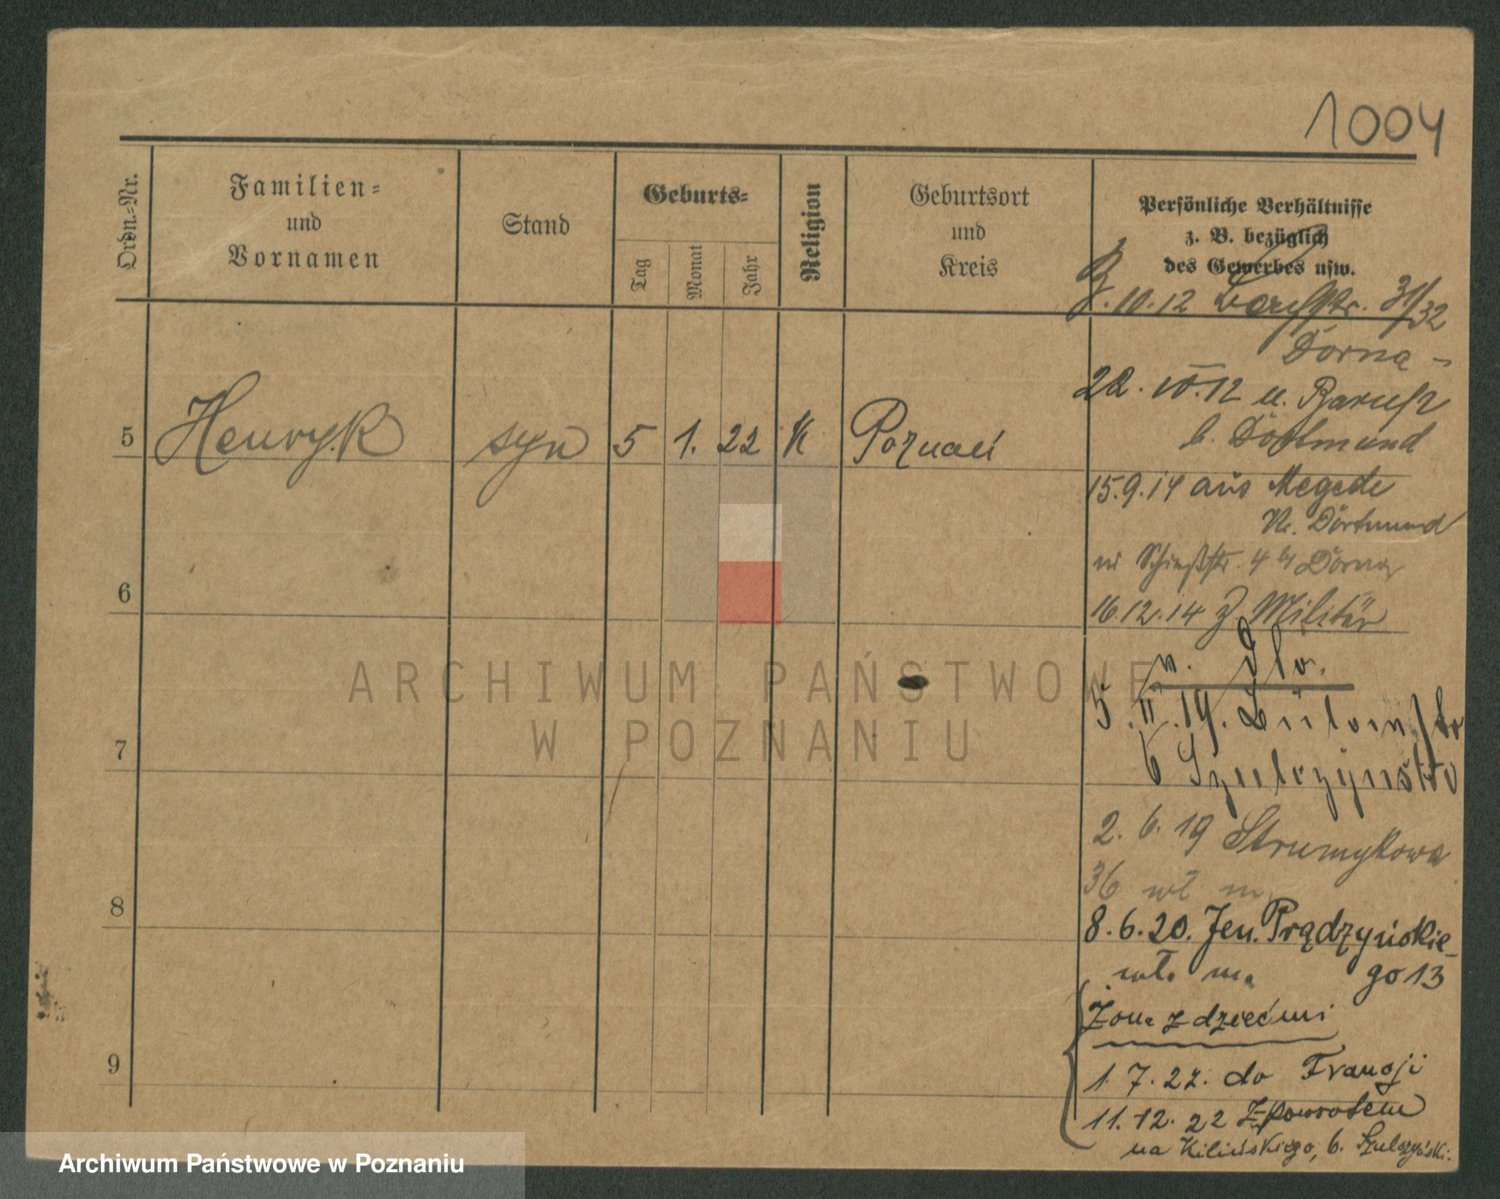 1004
Ordn.-Nr.
Familien-
und
Vornamen
Stand
Geburts-
Tag
Monat
Jahr
Religion
Geburtsort
und
Kreis
Persönliche Verhältnisse
z. B. bezüglich
des Gewerbes usw.
.10.12 31/32
Dorna-
22. 12 u.
b. Dortmund
5 Henryk syn 5 1. 22 K Poznań
15.9.14 aus Megede
Kr. Dortmund
Schießstr. 4 b/ Dorna
16.12.14 z Militär
6
v.
5.II.19.
b Szulczyński
7
2. 6. 19 Strumykowa
36 wł m
8
8.6.20. Jen. Prądzyńskie-
wł. m. go 13
Żona z dziećmi
9
1.7.22. do Francji
11.12.22 z powrotem
na Kilińskiego, b. Szulczyński.
ARCHIWUM PAŃSTWOWE
W POZNANIU
Archiwum Państwowe w Poznaniu